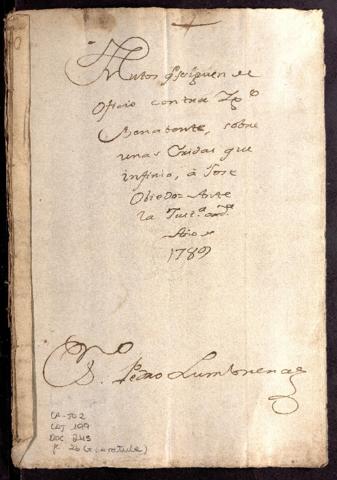 Autos q.e ssiguen de
Oficio contra Jph
Benabente, sobre
unas Eridas que
infirio, à Jose
Obiedo = Ante
la Just.a ord.a
Año de
1789
S.no Pedro Lumbreras
CA-JO2
CAJ 199
DOC 243
f. 26 (+ caratula)